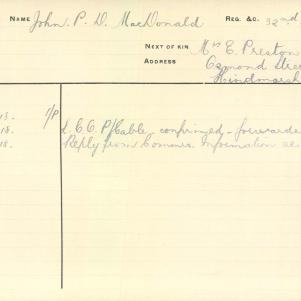 NAME John. P. D. MacDonald REG. &C. 32nd
NEXT OF KIN Mrs E. Preston
ADDRESS Osmond Stree
Hindmarsh
13. I/P
18. L.C.C. P/Cable confirmed - forwarde
18. Reply from Commr. Information as